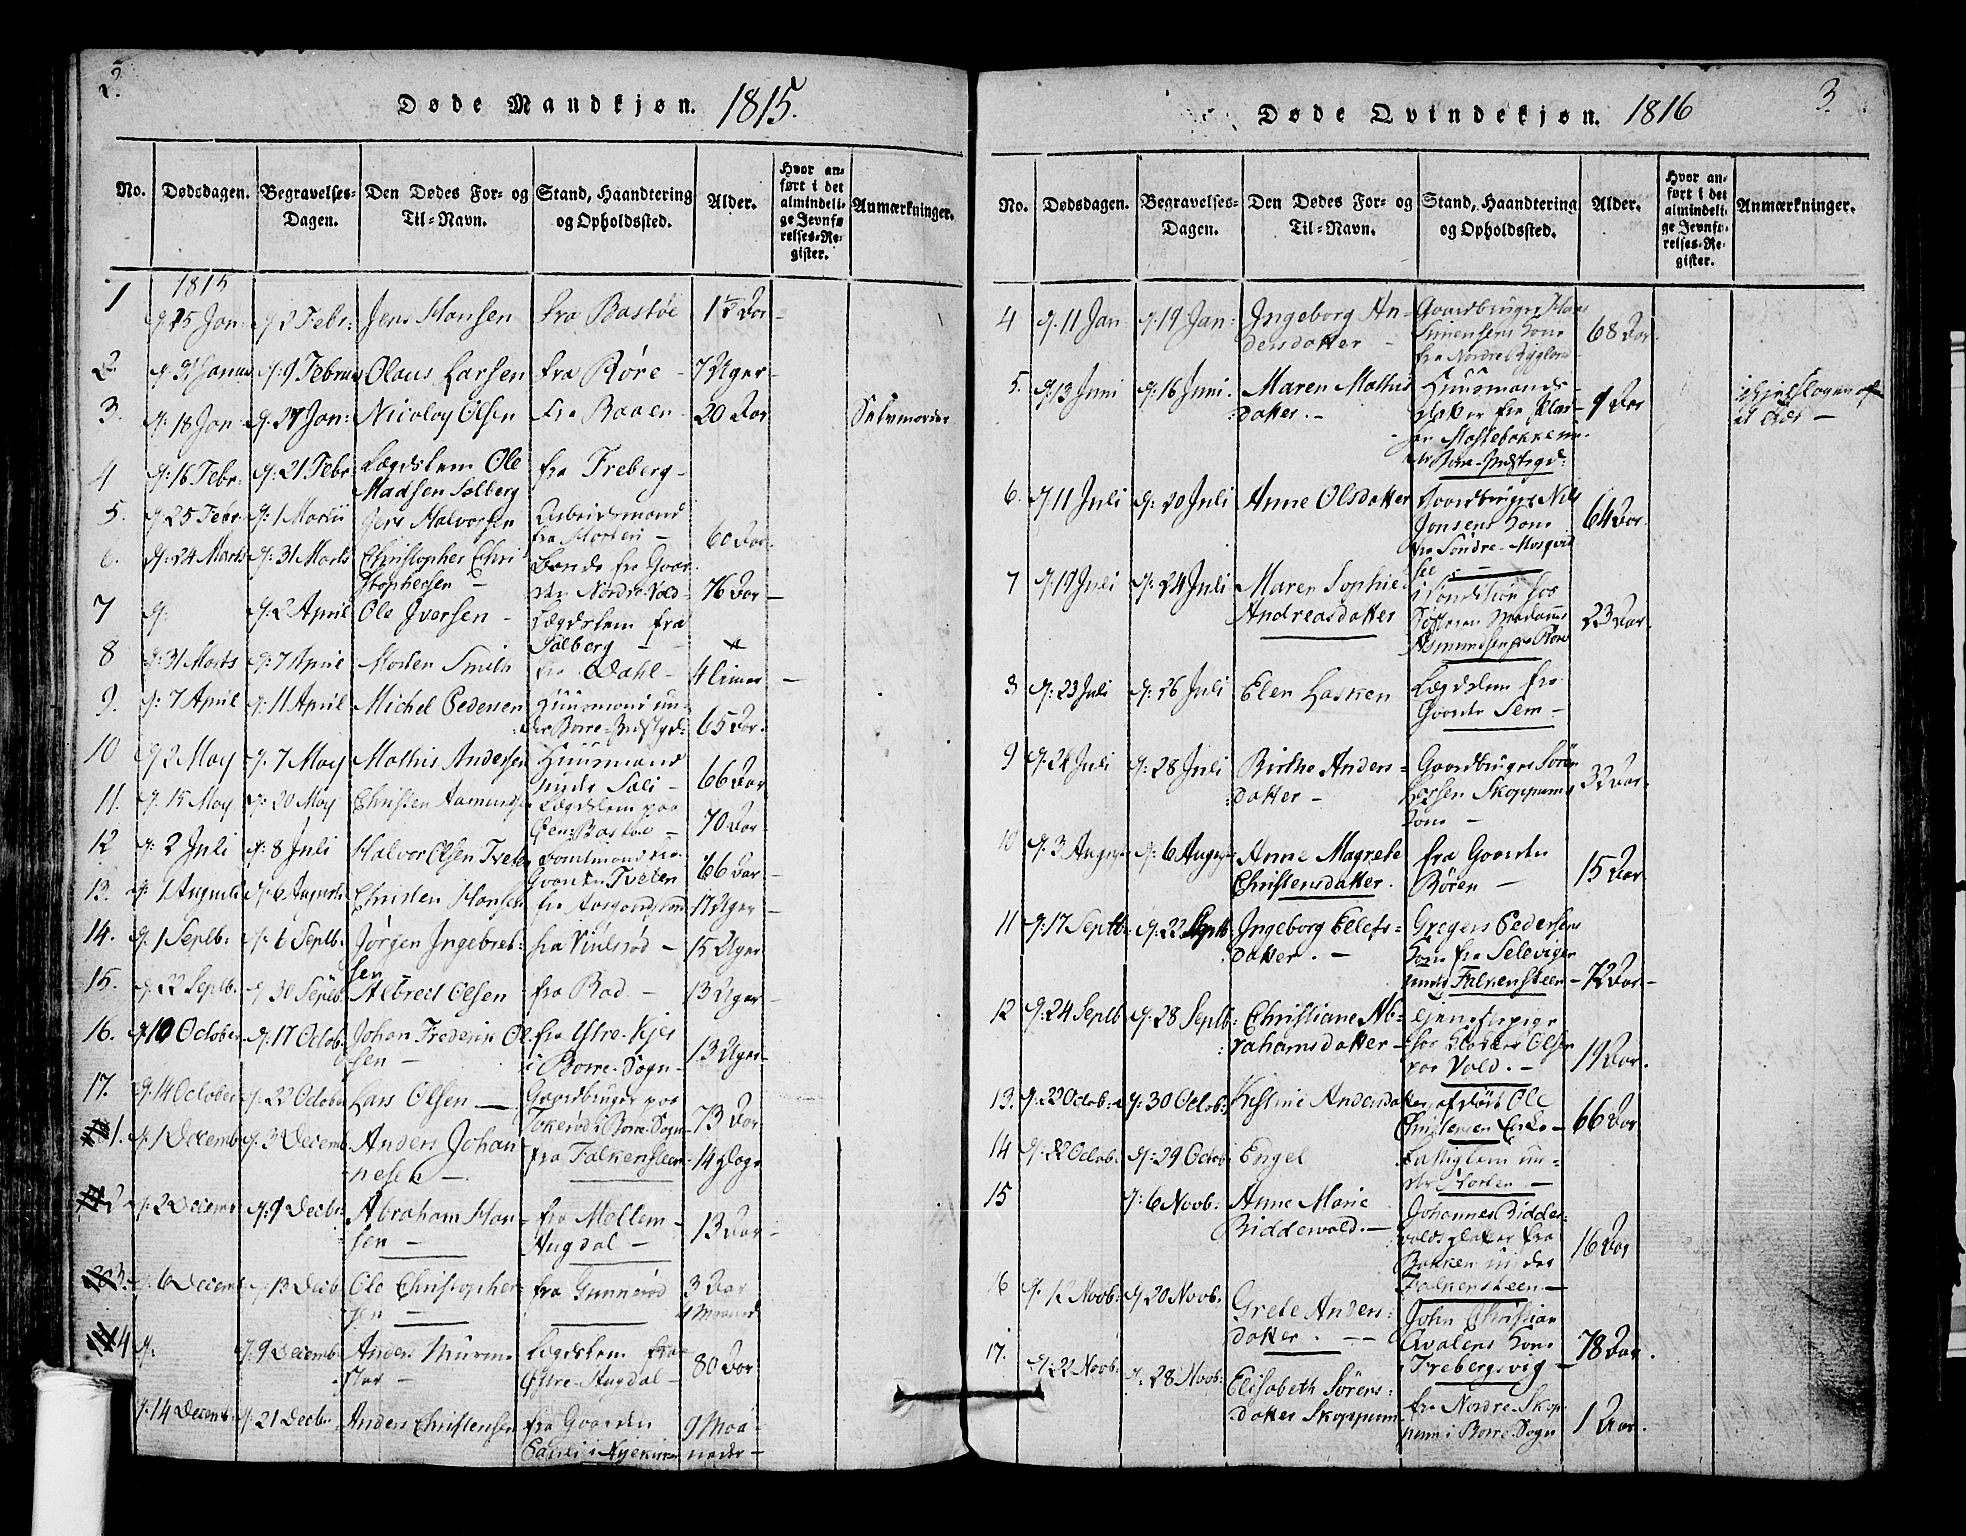 2.
Døde Mandkjøn. 1815.
No. Dødsdagen. Begravelses-Dagen. Den Dødes For- og Til-Navn. Stand, Haandtering og Opholdssted. Alder. Hvor anført i det almindelige Jevnførelses-Register. Anmærkninger.
1815
1 d. 25 Jan: d. 2 Febr: Jens Hansen fra Bastøe 1½ Aar
2 d. 31 Januar d. 9 Februar Olaus Larsen fra Røre 7 Uger
3. d. 18 Jan: d. 27 Jan: Nicolay Olsen fra Baaen 20 Aar Selvmorder
4 d. 16 Febr: d. 21 Febr Lægdslem Ole
Madsen Solberg fra Freberg
5. d. 25 Febr. d. 1 Martii Jens Halvorsen Arbeidsmand
fra Horten 60 Aar
6. d. 24 Marts d. 31 Marts Christopher Chri
stophersen Bonde fra Gaar
den Nordre Vold 76 Aar
7 d. d. 2 April Ole Iversen Lægdslem fra
Solberg
8 d. 31 Marts d. 7 April Morten Smith fra Dahl 4 Timer
9. d. 7 April d. 11 April Michel Pedersen Huusmand un-
der Borre-Præstgd: 65 Aar.
10 d. 2 May d. 7 May Mathis Andersen Huusmand
under Sali 66 Aar
11. d. 15 May d. 20 May Christen Aamunds Lægdslem paa
Øen Bastøe 70 Aar
12 d. 2 Juli d. 8 Juli Halvor Olsen Tveten
Gaarden Tveten 66 Aar
13. d. 1 Augusti d. 6 Augusti Christen Hansen fra Aasgaardstrand 17 Uger
14. d. 1 Septb: d. 6 Septb: Jørgen Ingebret-
sen fra Viulsrød 15 Uger
15. d. 22 Septb. d. 30 Septb: Albrect Olsen fra Rød 13 Uger
16. d. 10 October d. 17 Octob: Johan Frederik Ol-
sen fra Østre-Kjer
i Borre-Sogn 13 Uger
17. d. 14 October d. 22 October Lars Olsen Gaardbruger paa
i Borre-Sogn 73 Aar
1. d. 1 Decemb: d. 3 Decemb: Anders Johan
nesen fra Falkensteen 14 Dage
2 d. 2 Decemb: d. 9 Decbr: Abraham Han-
sen fra Mellem-
Augdal 13 Aar
3. d. 6 Decemb: d. 13 Decb: Ole Christopher
sen fra Gunnerød 3 Aar
1 Maaned
4 d. d. 9 Decemb: Anders Murme
ster Lægdslem fra
Østre-Augdal 80 Aar
d. 14 Decemb: d. 21 Decbr: Anders Christensen fra Gaarden
i Nykirke 9 Maa
neder
3
Døde Qvindekjøn. 1816
No. Dødsdagen. Begravelses-Dagen. Den Dødes For- og Til-Navn. Stand, Haandtering og Opholdssted. Alder. Hvor anført i det almindelige Jevnførelses-Register. Anmærkninger.
4 d. 11 Jan: d. 19 Jan: Ingeborg An-
dersdatter Gaardbruger Hans
Simensens Kone
fra Nordre 68 Aar
5. d. 13 Juni d. 16 Juni. Maren Mathis
datter. Huusmands-
datter fra
under Borre-Præstegd: 9 Aar ihjelslagen af
et
6. d. 11 Juli d. 20 Juli Anne Olsdatter Gaardbruger Nils
Jensens Kone
fra Søndre 64 Aar.
7 d. 19 Juli d. 24 Juli Maren Sophie
Andreasdatter i Condition hos
Madame
Asmundsen paa Røre 23 Aar.
8 d. 23 Juli d. 26 Juli Elen Larsen Lægdslem fra
Gaarden Sem
9 d. 24 Juli d. 28 Juli Birthe Anders-
datter Gaardbruger Sören
Larsen Skoppums
Kone 32 Aar
10 d. 3 August d. 6 August Anne Magrete
Christensdatter. fra Gaarden
Røren 15 Aar
11 d. 17 Septb: d. 22 Septb: Ingeborg Elefs-
datter. Gregers Pedersens
Kone fra Selevigen
under Falkensteen 72 Aar
12 d. 24 Septb d. 28 Septb: Christiane Ab-
rahamsdatter Tjenestepige
hos Klokker Olsen
paa Vold. 19 Aar.
13. d. 22 Octob: d. 30 Octob: Kistine Andersdat
ter afdøde Ole
Christensen Enke 66 Aar
14 d. 22 Octob. d. 29 Octob Engel Fattiglem un-
der Horten
15 d. 6 Novb: Anne Marie
Ridderwold. Johannes Ridder-
volds datter fra
Bakken under
Falkensteen 16 Aar
16 d. 12 Novb: d. 20 Novb: Grete Anders-
datter. John Christian
Kone
i Frebergsvig 78 Aar.
17. d. 22 Novb: d. 28 Novb: Elisabeth Sörens-
datter Skoppum fra Nordre-Skop-
pum i Borre-Sogn 1 Aar.